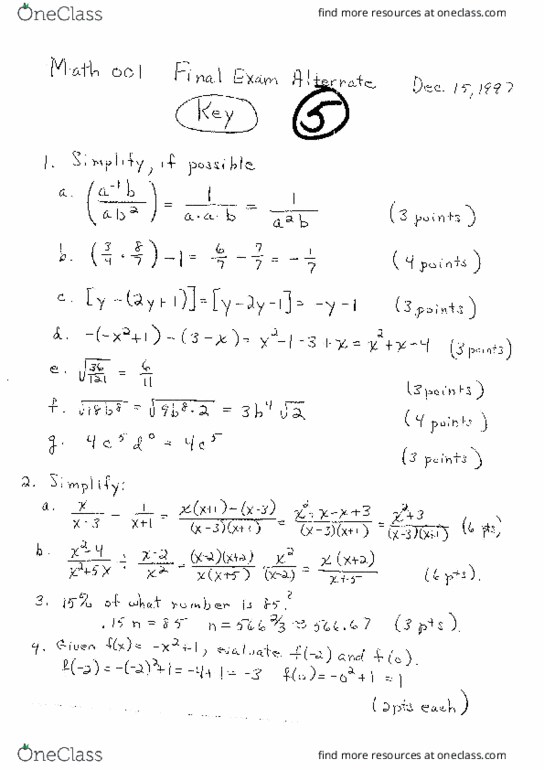 OneClass find more resources at oneclass.com
Math 001 Final Exam Alternate Dec. 15, 1997
Key 5
1. Simplify, if possible
a. (a⁻¹b / ab²) = 1 / a·a·b = 1 / a²b (3 points)
b. (3/4 · 8/7) - 1 = 6/7 - 7/7 = -1/7 (4 points)
c. [y - (2y+1)] = [y-2y-1] = -y-1 (3 points)
d. -(-x²+1) - (3-x) = x²-1-3+x = x²+x-4 (3 points)
e. √(36/121) = 6/11 (3 points)
f. √(18b⁸) = √(9b⁸·2) = 3b⁴√2 (4 points)
g. 4c⁵d⁰ = 4c⁵ (3 points)
2. Simplify:
a. x/(x-3) - 1/(x+1) = (x(x+1)-(x-3))/((x-3)(x+1)) = (x²+x-x+3)/((x-3)(x+1)) = (x²+3)/((x-3)(x+1)) (6 pts)
b. (x²-4)/(x²+5x) ÷ (x-2)/x² = ((x-2)(x+2))/(x(x+5)) · x²/(x-2) = x(x+2)/(x+5) (6 pts).
3. 15% of what number is 85?
.15n = 85 n = 566 2/3 ≈ 566.67 (3 pts).
4. Given f(x) = -x²+1, evaluate f(-2) and f(0).
f(-2) = -(-2)²+1 = -4+1 = -3 f(0) = -0²+1 = 1
(2pts each)
OneClass find more resources at oneclass.com